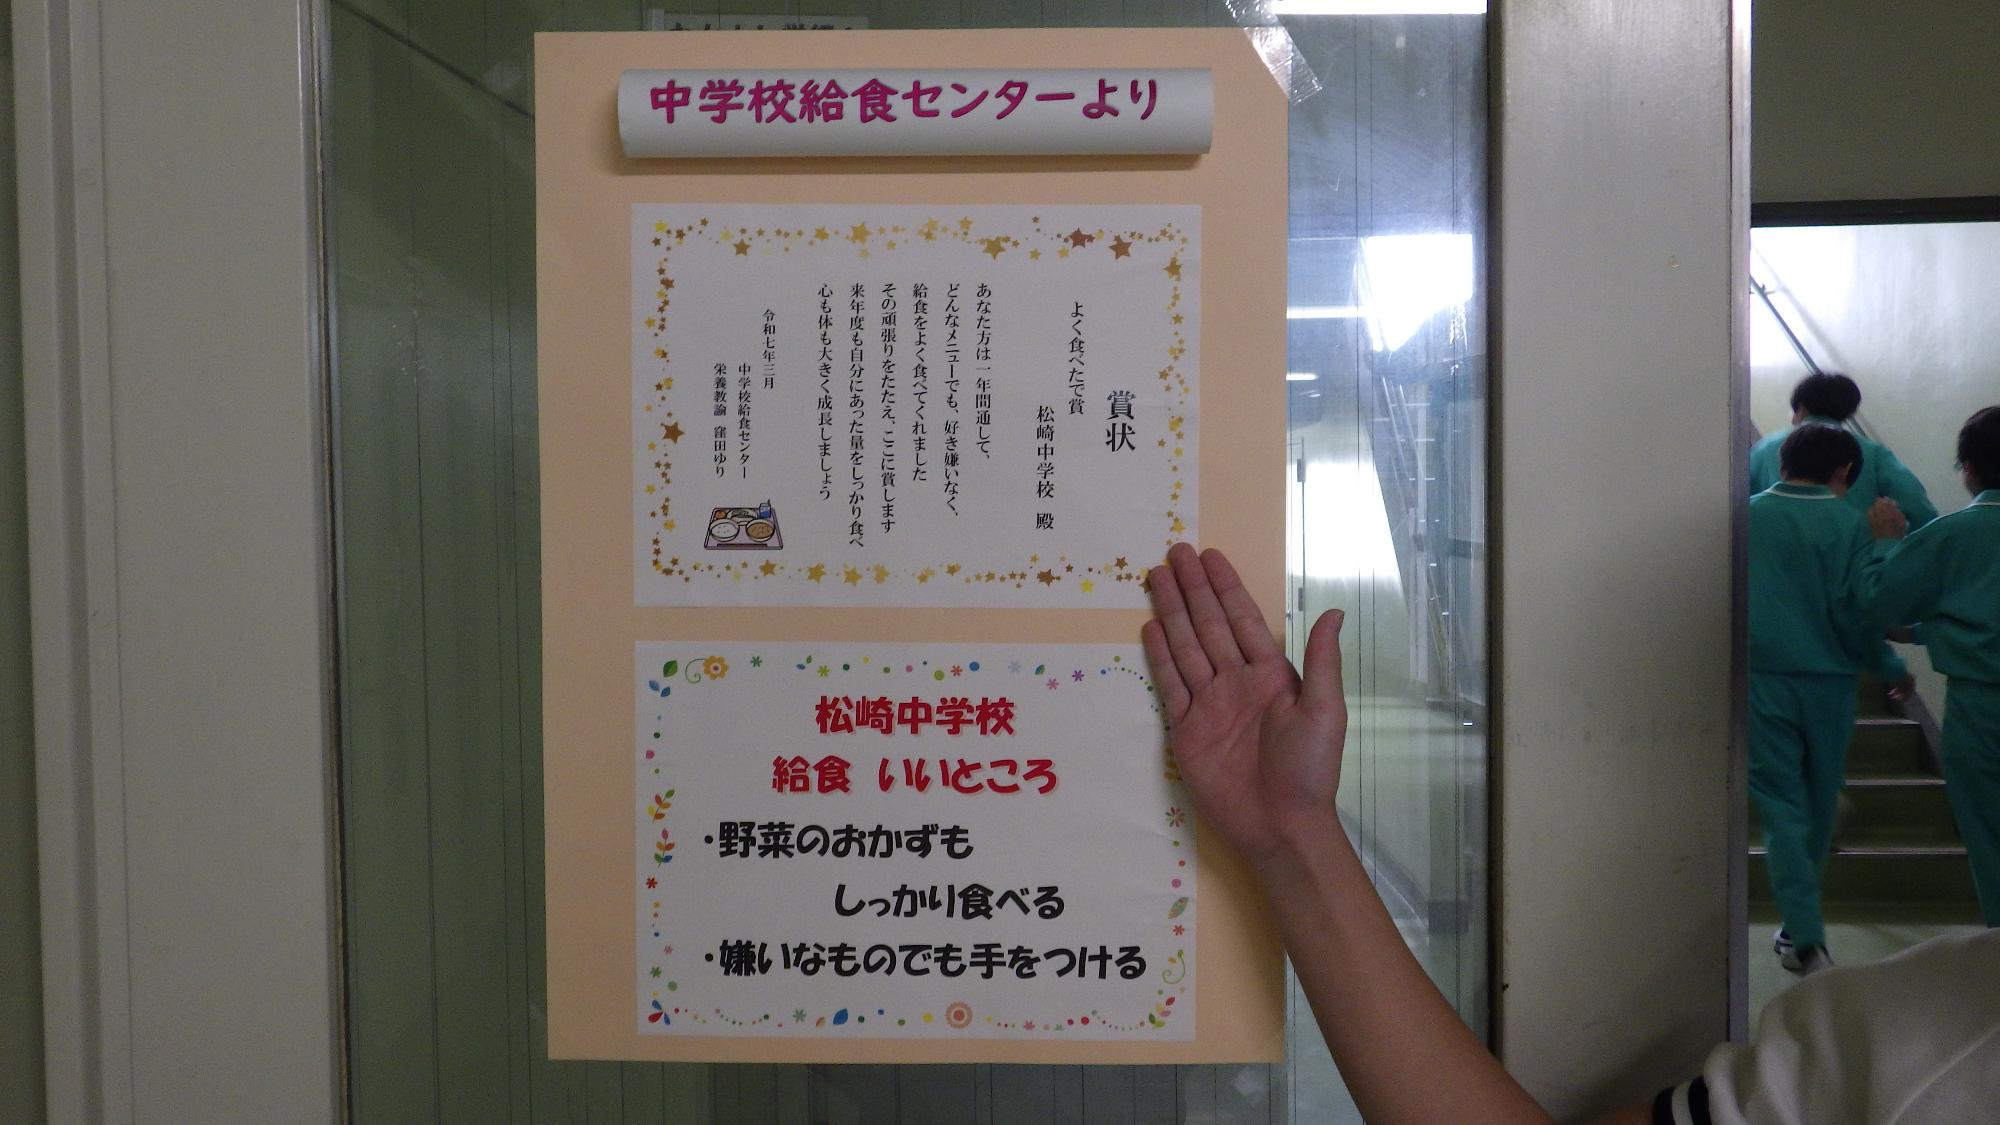 中学校給食センターより
賞状
よく食べたで賞
松崎中学校 殿
あなた方は一年間通して、
どんなメニューでも、好き嫌いなく、
給食をよく食べてくれました
その頑張りをたたえ、ここに賞します
来年度も自分にあった量をしっかり食べ
心も体も大きく成長しましょう
令和七年三月
中学校給食センター
栄養教諭 窪田ゆり
松崎中学校
給食 いいところ
・野菜のおかずも
しっかり食べる
・嫌いなものでも手をつける